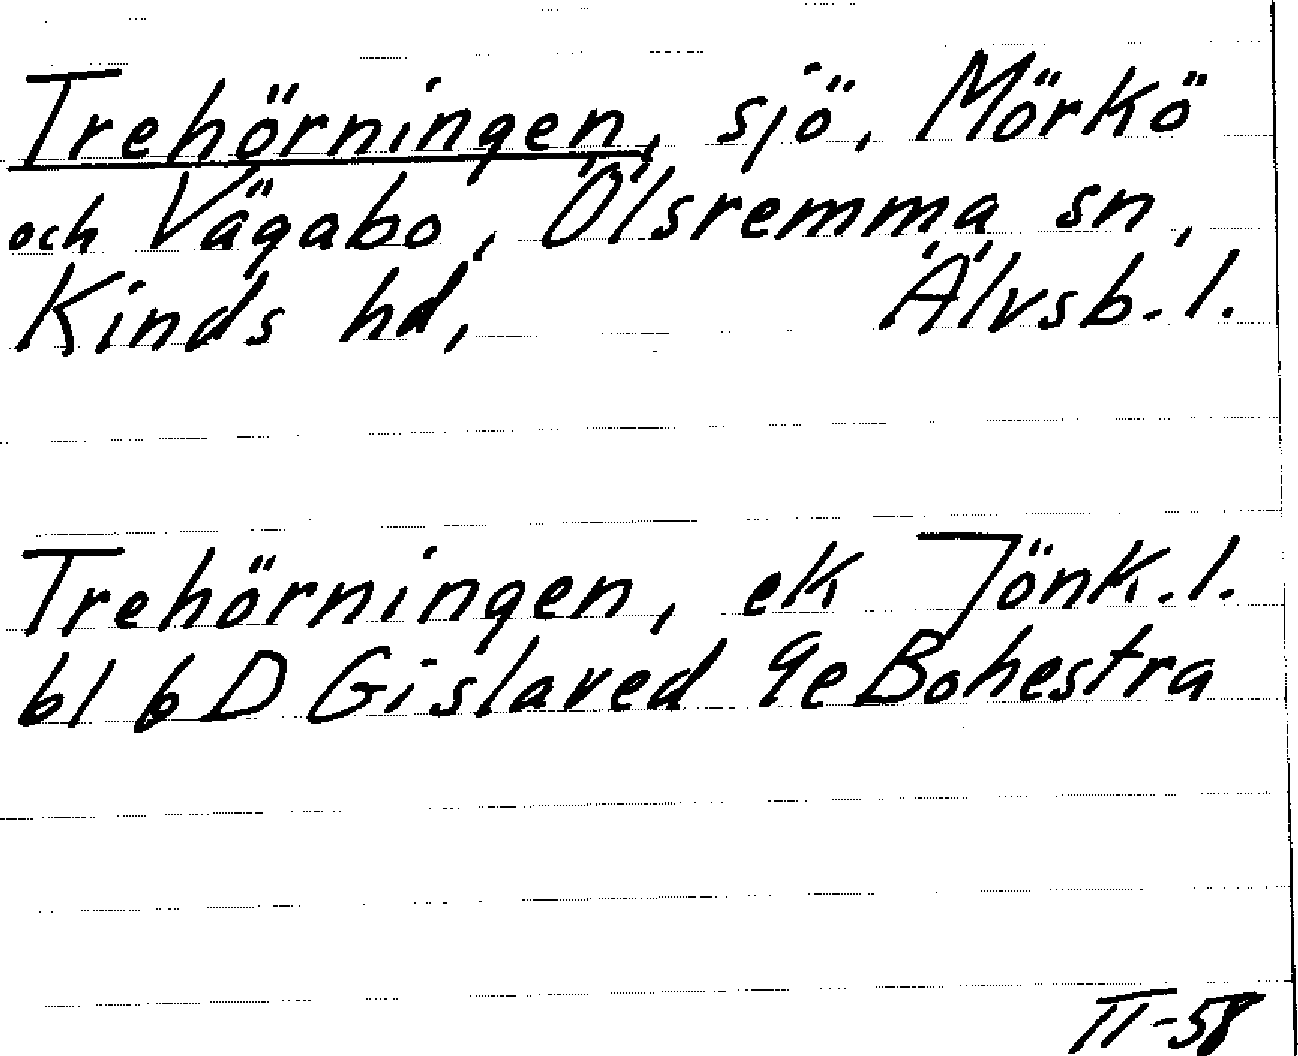 Trehörningen, sjö, Mörkö
och Vägabo, Ölsremma sn,
Kinds hd, Älvsb. l.
Trehörningen, ek Jönk. l.
bl 6 D Gislaved 9e Bohestra
TT-58